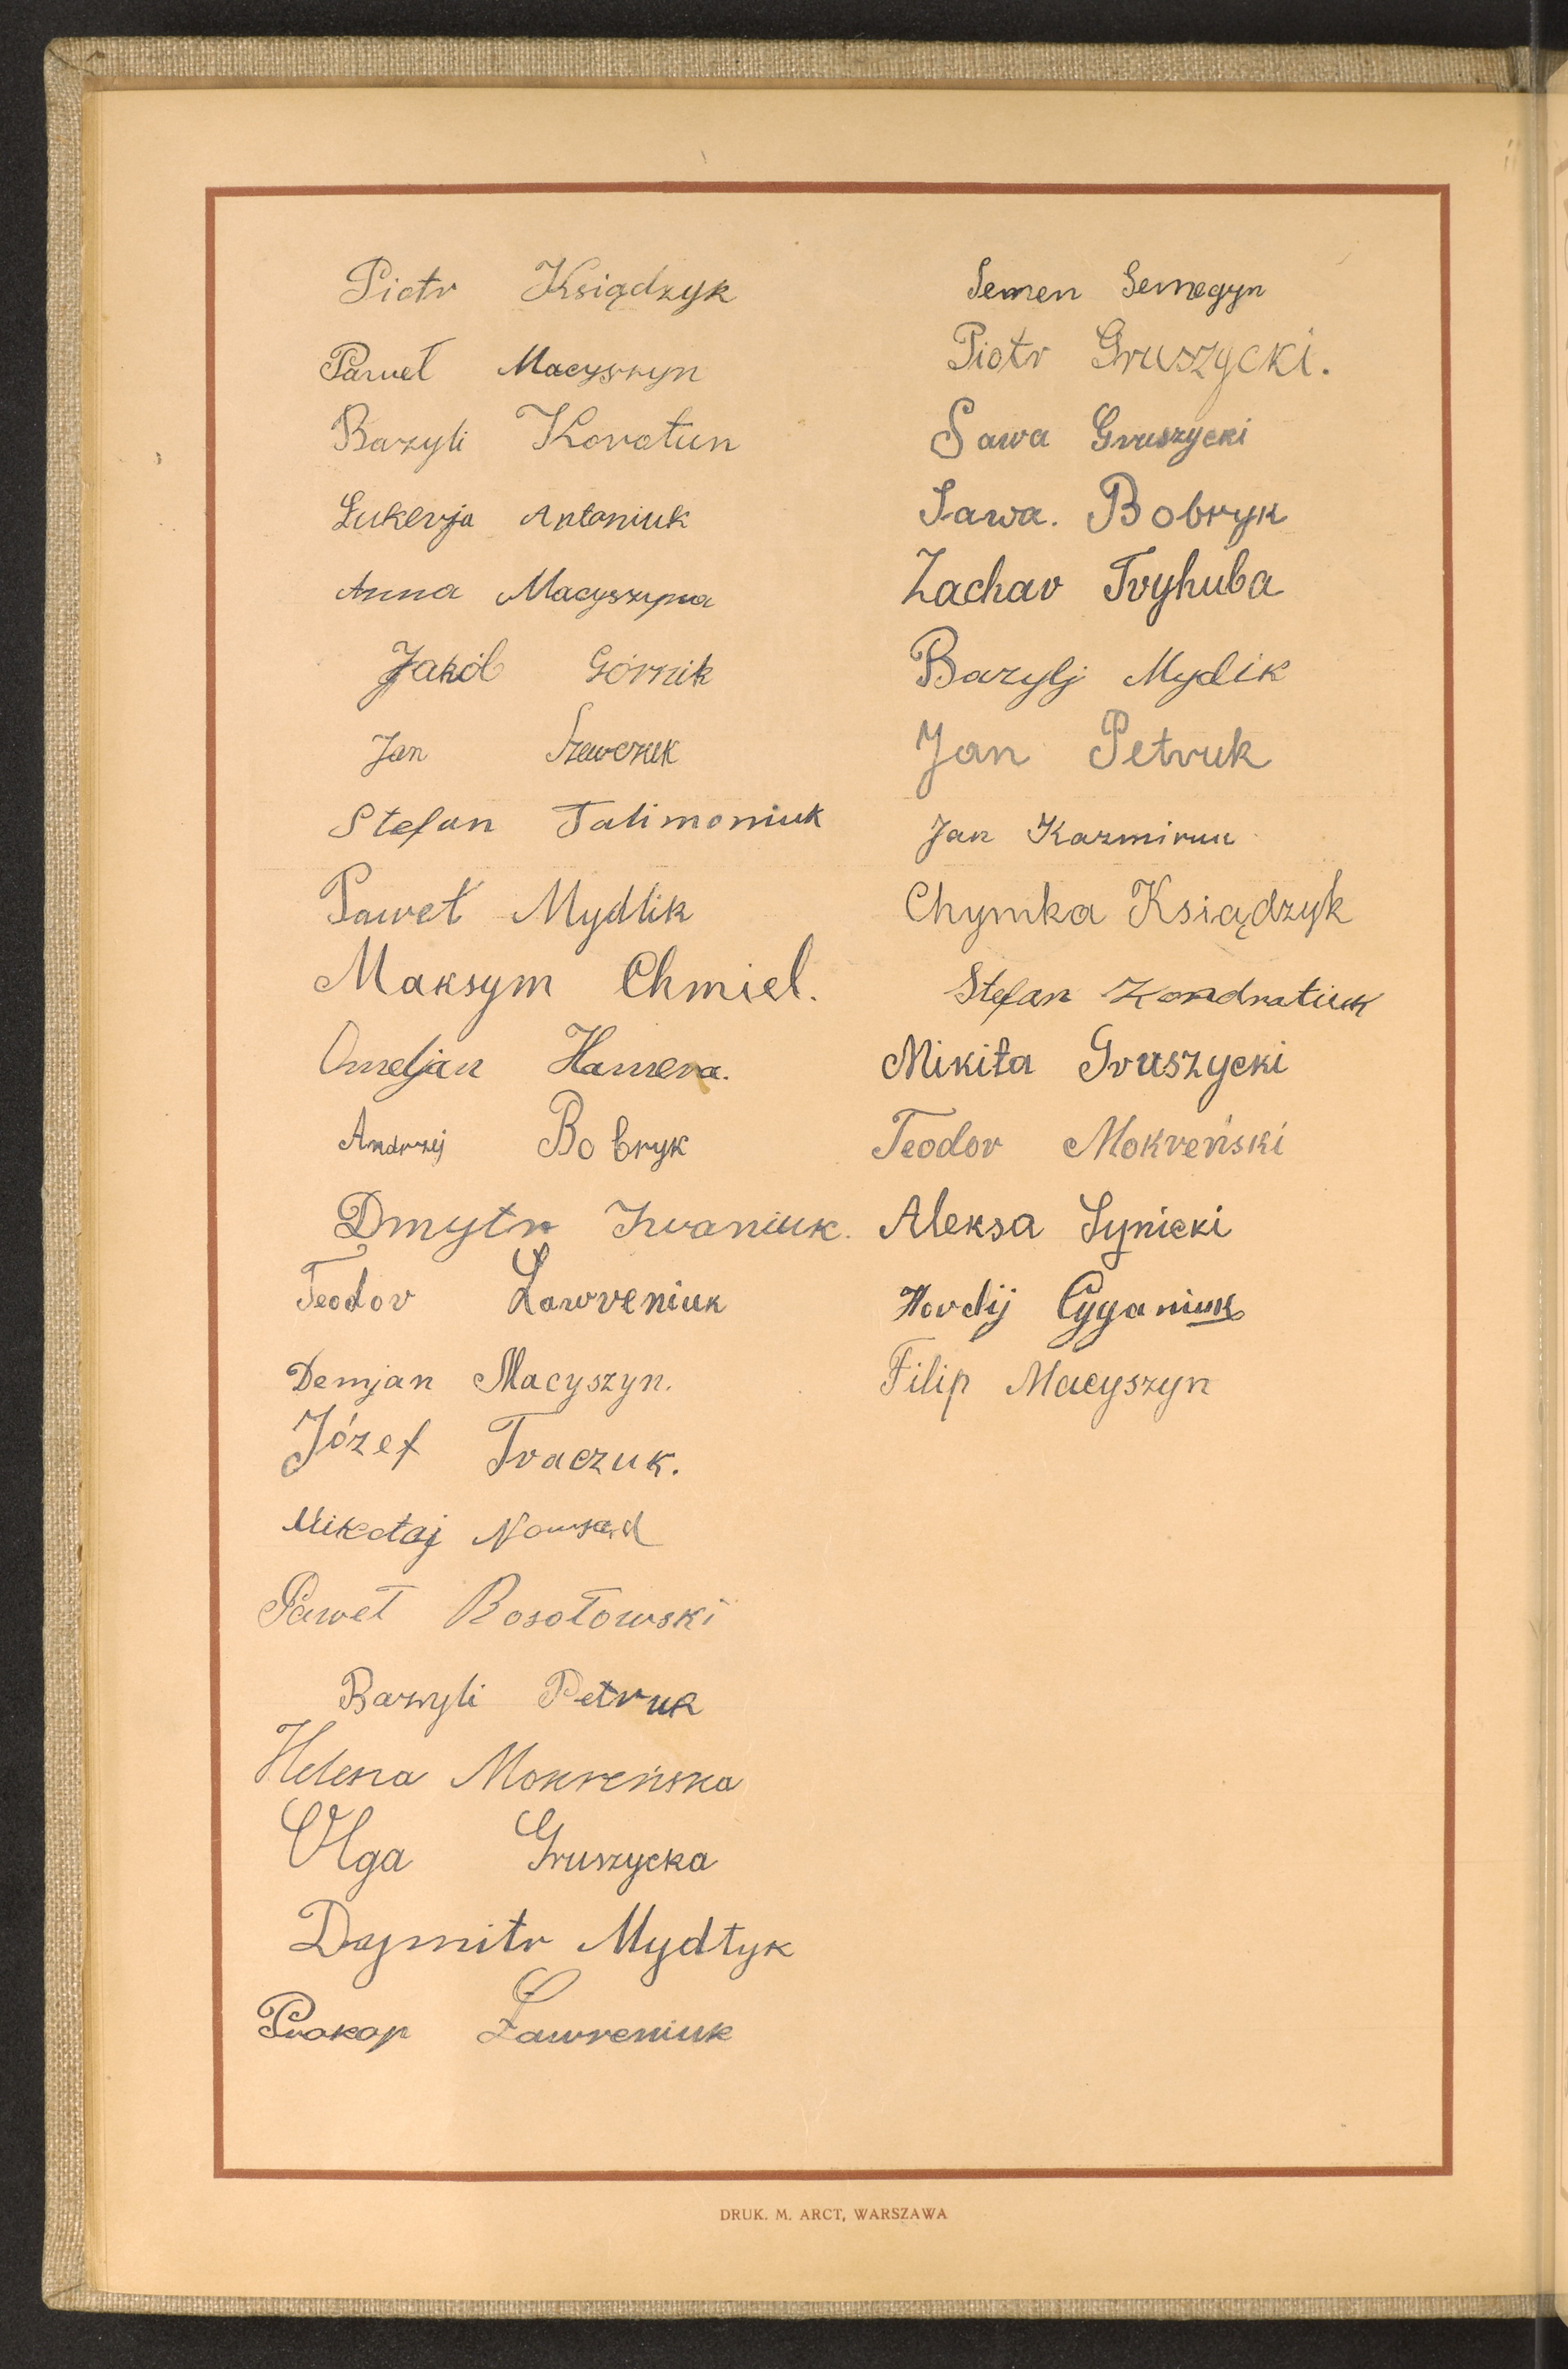 Piotr Ksiądzyk
Paweł Macyszyn
Bazyli Korotun
Łukerja Antoniuk
Anna Macyszyna
Jakób Górnik
Jan Szewczuk
Stefan Talimoniuk
Paweł Mydlik
Maksym Chmiel.
Omeljan Hamera.
Andrzej Bobryk
Dmytr Iwaniuk.
Teodor Ławreniuk
Demjan Macyszyn.
Józef Traczuk.
Mikołaj Nowsad
Paweł Rosołowski
Bazyli Petruk
Helena Mokreńska
Olga Gruszycka
Dajmitr Mydłyk
Prokop Ławreniuk
Semen Semegyn
Piotr Gruszycki.
Sawa Gruszycki
Sawa. Bobryk
Zachar Tryhuba
Bazylj Mydlik
Jan Petruk
Jan Kazmiruk
Chymka Ksiądzyk
Stefan Kondratiuk
Mikita Gruszycki
Teodor Mokreński
Aleksa Synicki
Hordij Cyganiuk
Filip Macyszyn
DRUK. M. ARCT, WARSZAWA